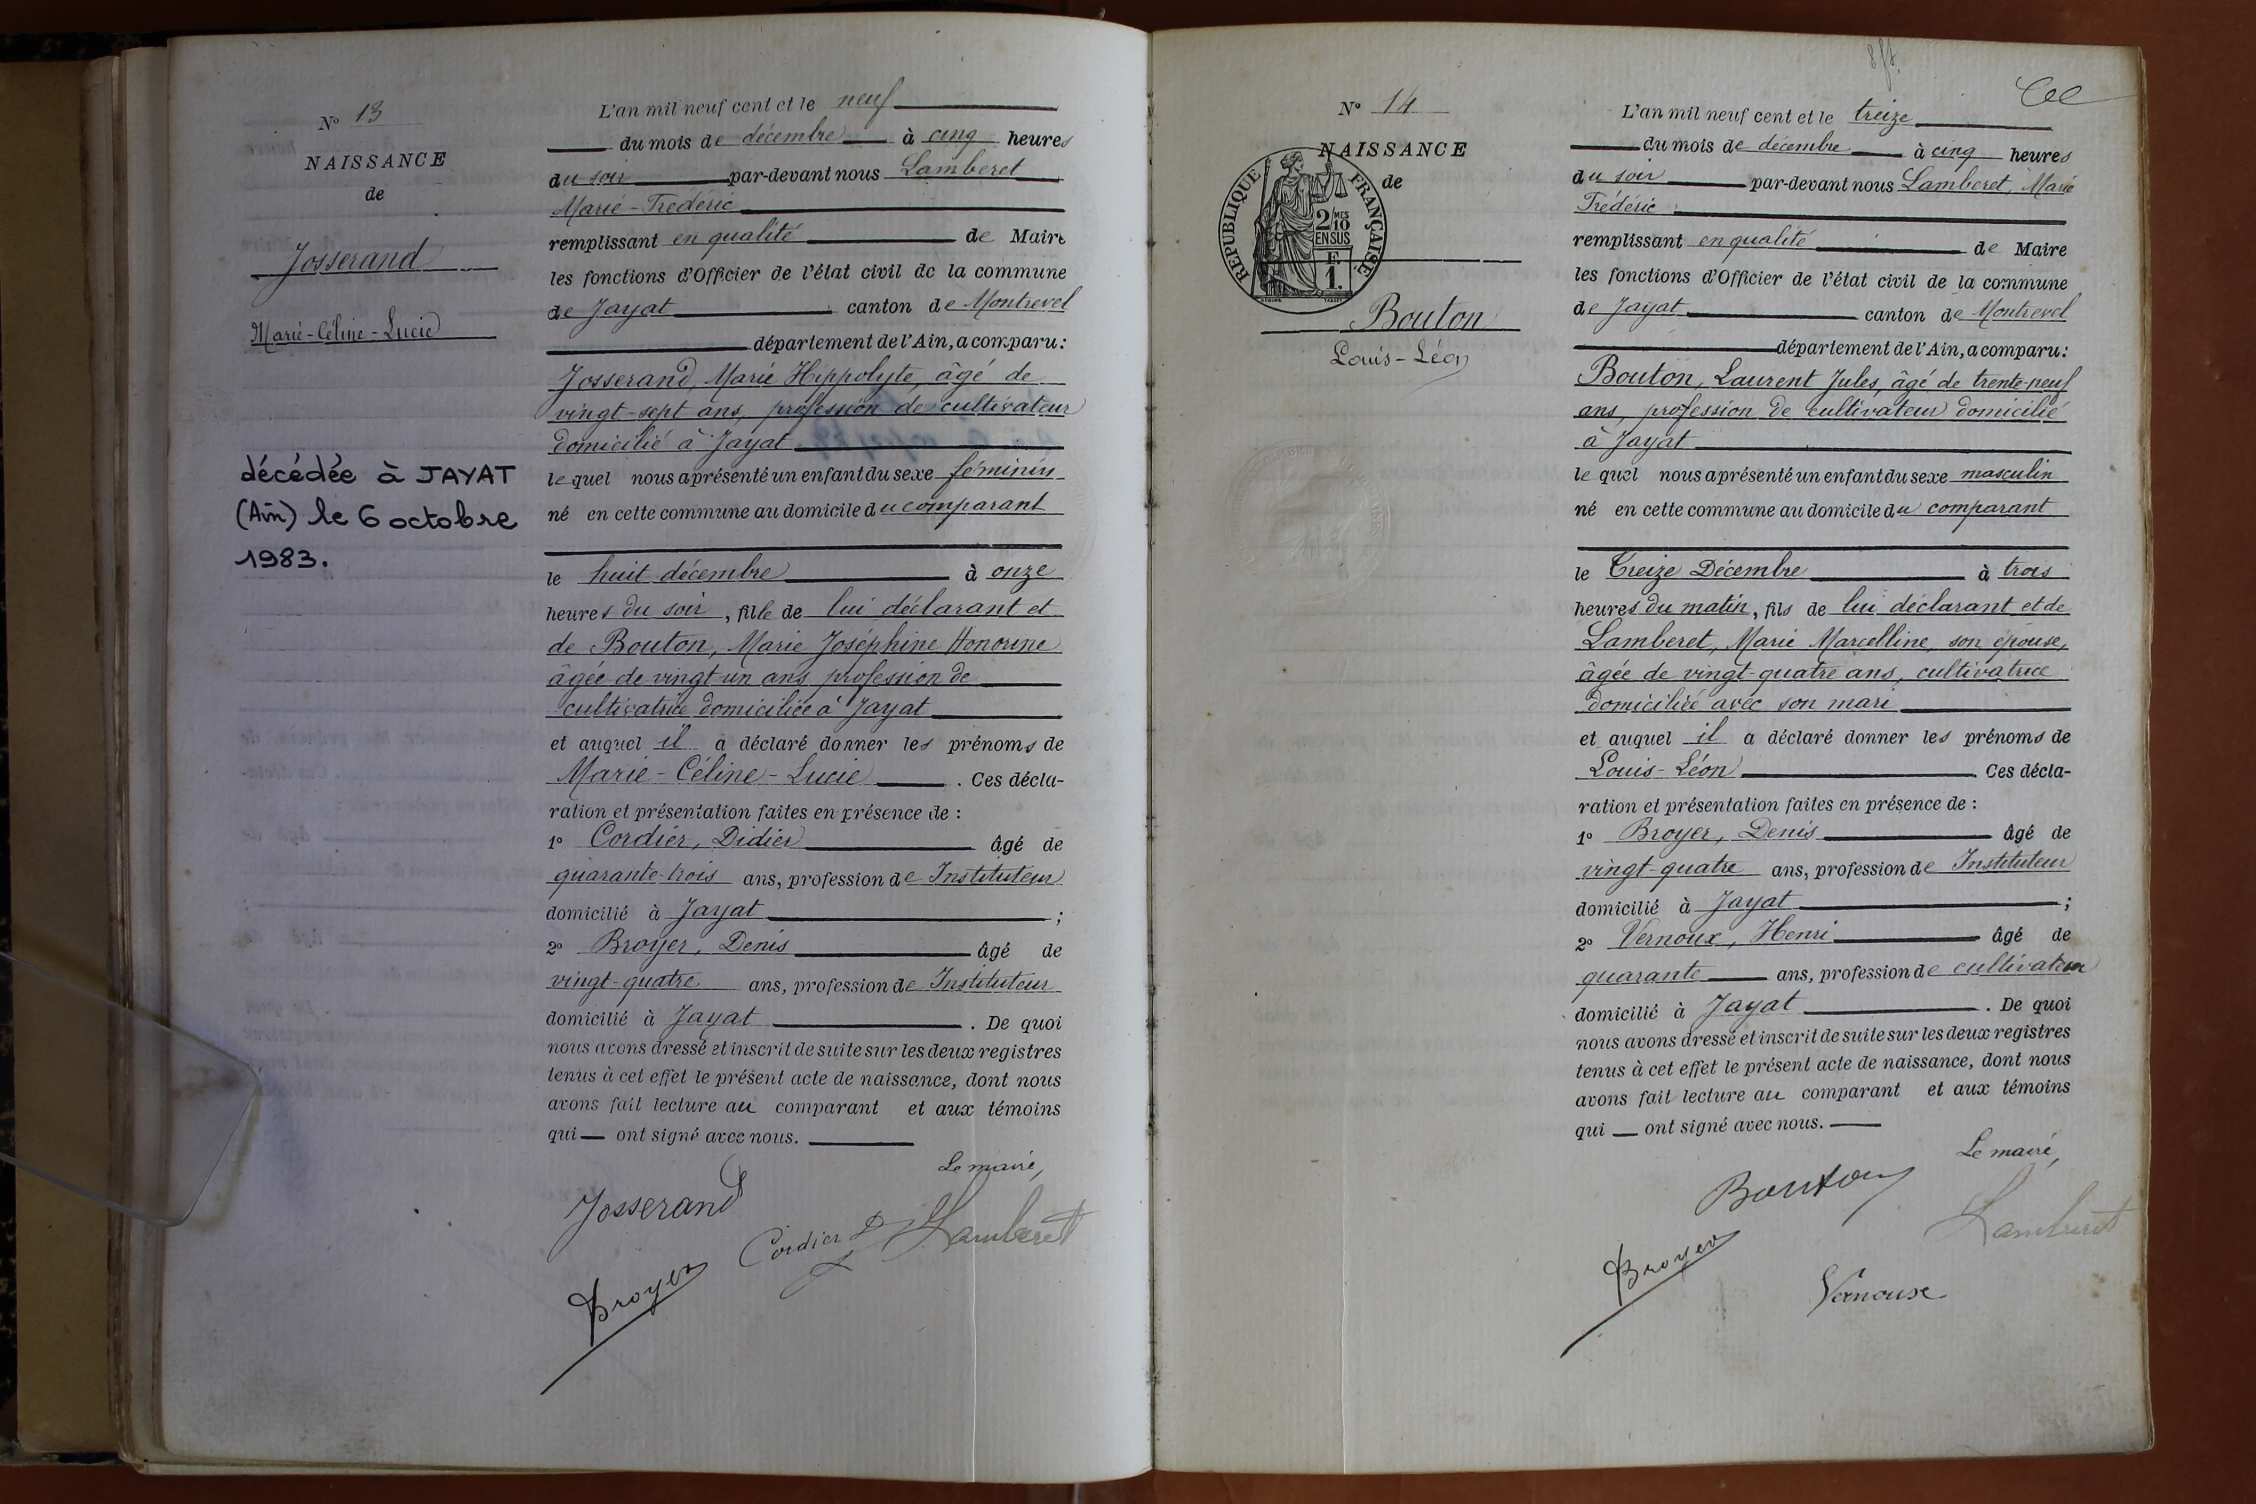 N° 13
NAISSANCE
de
Josserand
Marie-Céline-Lucie
décédée à JAYAT
(Ain) le 6 octobre
1983.
L'an mil neuf cent et le neuf
du mois de décembre à cinq heures
du soir par-devant nous Lamberet
Marie-Frédéric
remplissant en qualité de Maire
les fonctions d'Officier de l'état civil de la commune
de Jayat canton de Montrevel
département de l'Ain, a comparu:
Josserand, Marie Hippolyte, âgé de
vingt-sept ans, profession de cultivateur
domicilié à Jayat
le quel nous a présenté un enfant du sexe féminin
né en cette commune au domicile du comparant
le huit décembre à onze
heures du soir, fille de lui déclarant et
de Bouton, Marie Joséphine Honorine
âgée de vingt-un ans profession de
cultivatrice domiciliée à Jayat
et auquel il a déclaré donner les prénoms de
Marie-Céline-Lucie. Ces décla-
ration et présentation faites en présence de :
1° Cordier, Didier âgé de
quarante-trois ans, profession de Instituteur
domicilié à Jayat ;
2° Broyer, Denis âgé de
vingt-quatre ans, profession de Instituteur
domicilié à Jayat. De quoi
nous avons dressé et inscrit de suite sur les deux registres
tenus à cet effet le présent acte de naissance, dont nous
avons fait lecture au comparant et aux témoins
qui — ont signé avec nous.
Le maire,
Josserand
Cordier D
Lamberet
Broyer
N° 14
NAISSANCE
de
REPUBLIQUE FRANÇAISE
2/MES
10
EN SUS
F.
1.
Bouton
Louis-Léon
L'an mil neuf cent et le treize
du mois de décembre à cinq heures
du soir par-devant nous Lamberet, Marie
Frédéric
remplissant en qualité de Maire
les fonctions d'Officier de l'état civil de la commune
de Jayat canton de Montrevel
département de l'Ain, a comparu:
Bouton, Laurent Jules, âgé de trente-neuf
ans, profession de cultivateur domicilié
à Jayat
le quel nous a présenté un enfant du sexe masculin
né en cette commune au domicile du comparant
le Treize Décembre à trois
heures du matin, fils de lui déclarant et de
Lamberet, Marie Marcelline, son épouse,
âgée de vingt-quatre ans, cultivatrice
domiciliée avec son mari
et auquel il a déclaré donner les prénoms de
Louis-Léon Ces décla-
ration et présentation faites en présence de :
1° Broyer, Denis âgé de
vingt-quatre ans, profession de Instituteur
domicilié à Jayat ;
2° Vernoux, Henri âgé de
quarante ans, profession de cultivateur
domicilié à Jayat. De quoi
nous avons dressé et inscrit de suite sur les deux registres
tenus à cet effet le présent acte de naissance, dont nous
avons fait lecture au comparant et aux témoins
qui — ont signé avec nous.
Le maire,
Bouton
Lamberet
Broyer
Vernoux